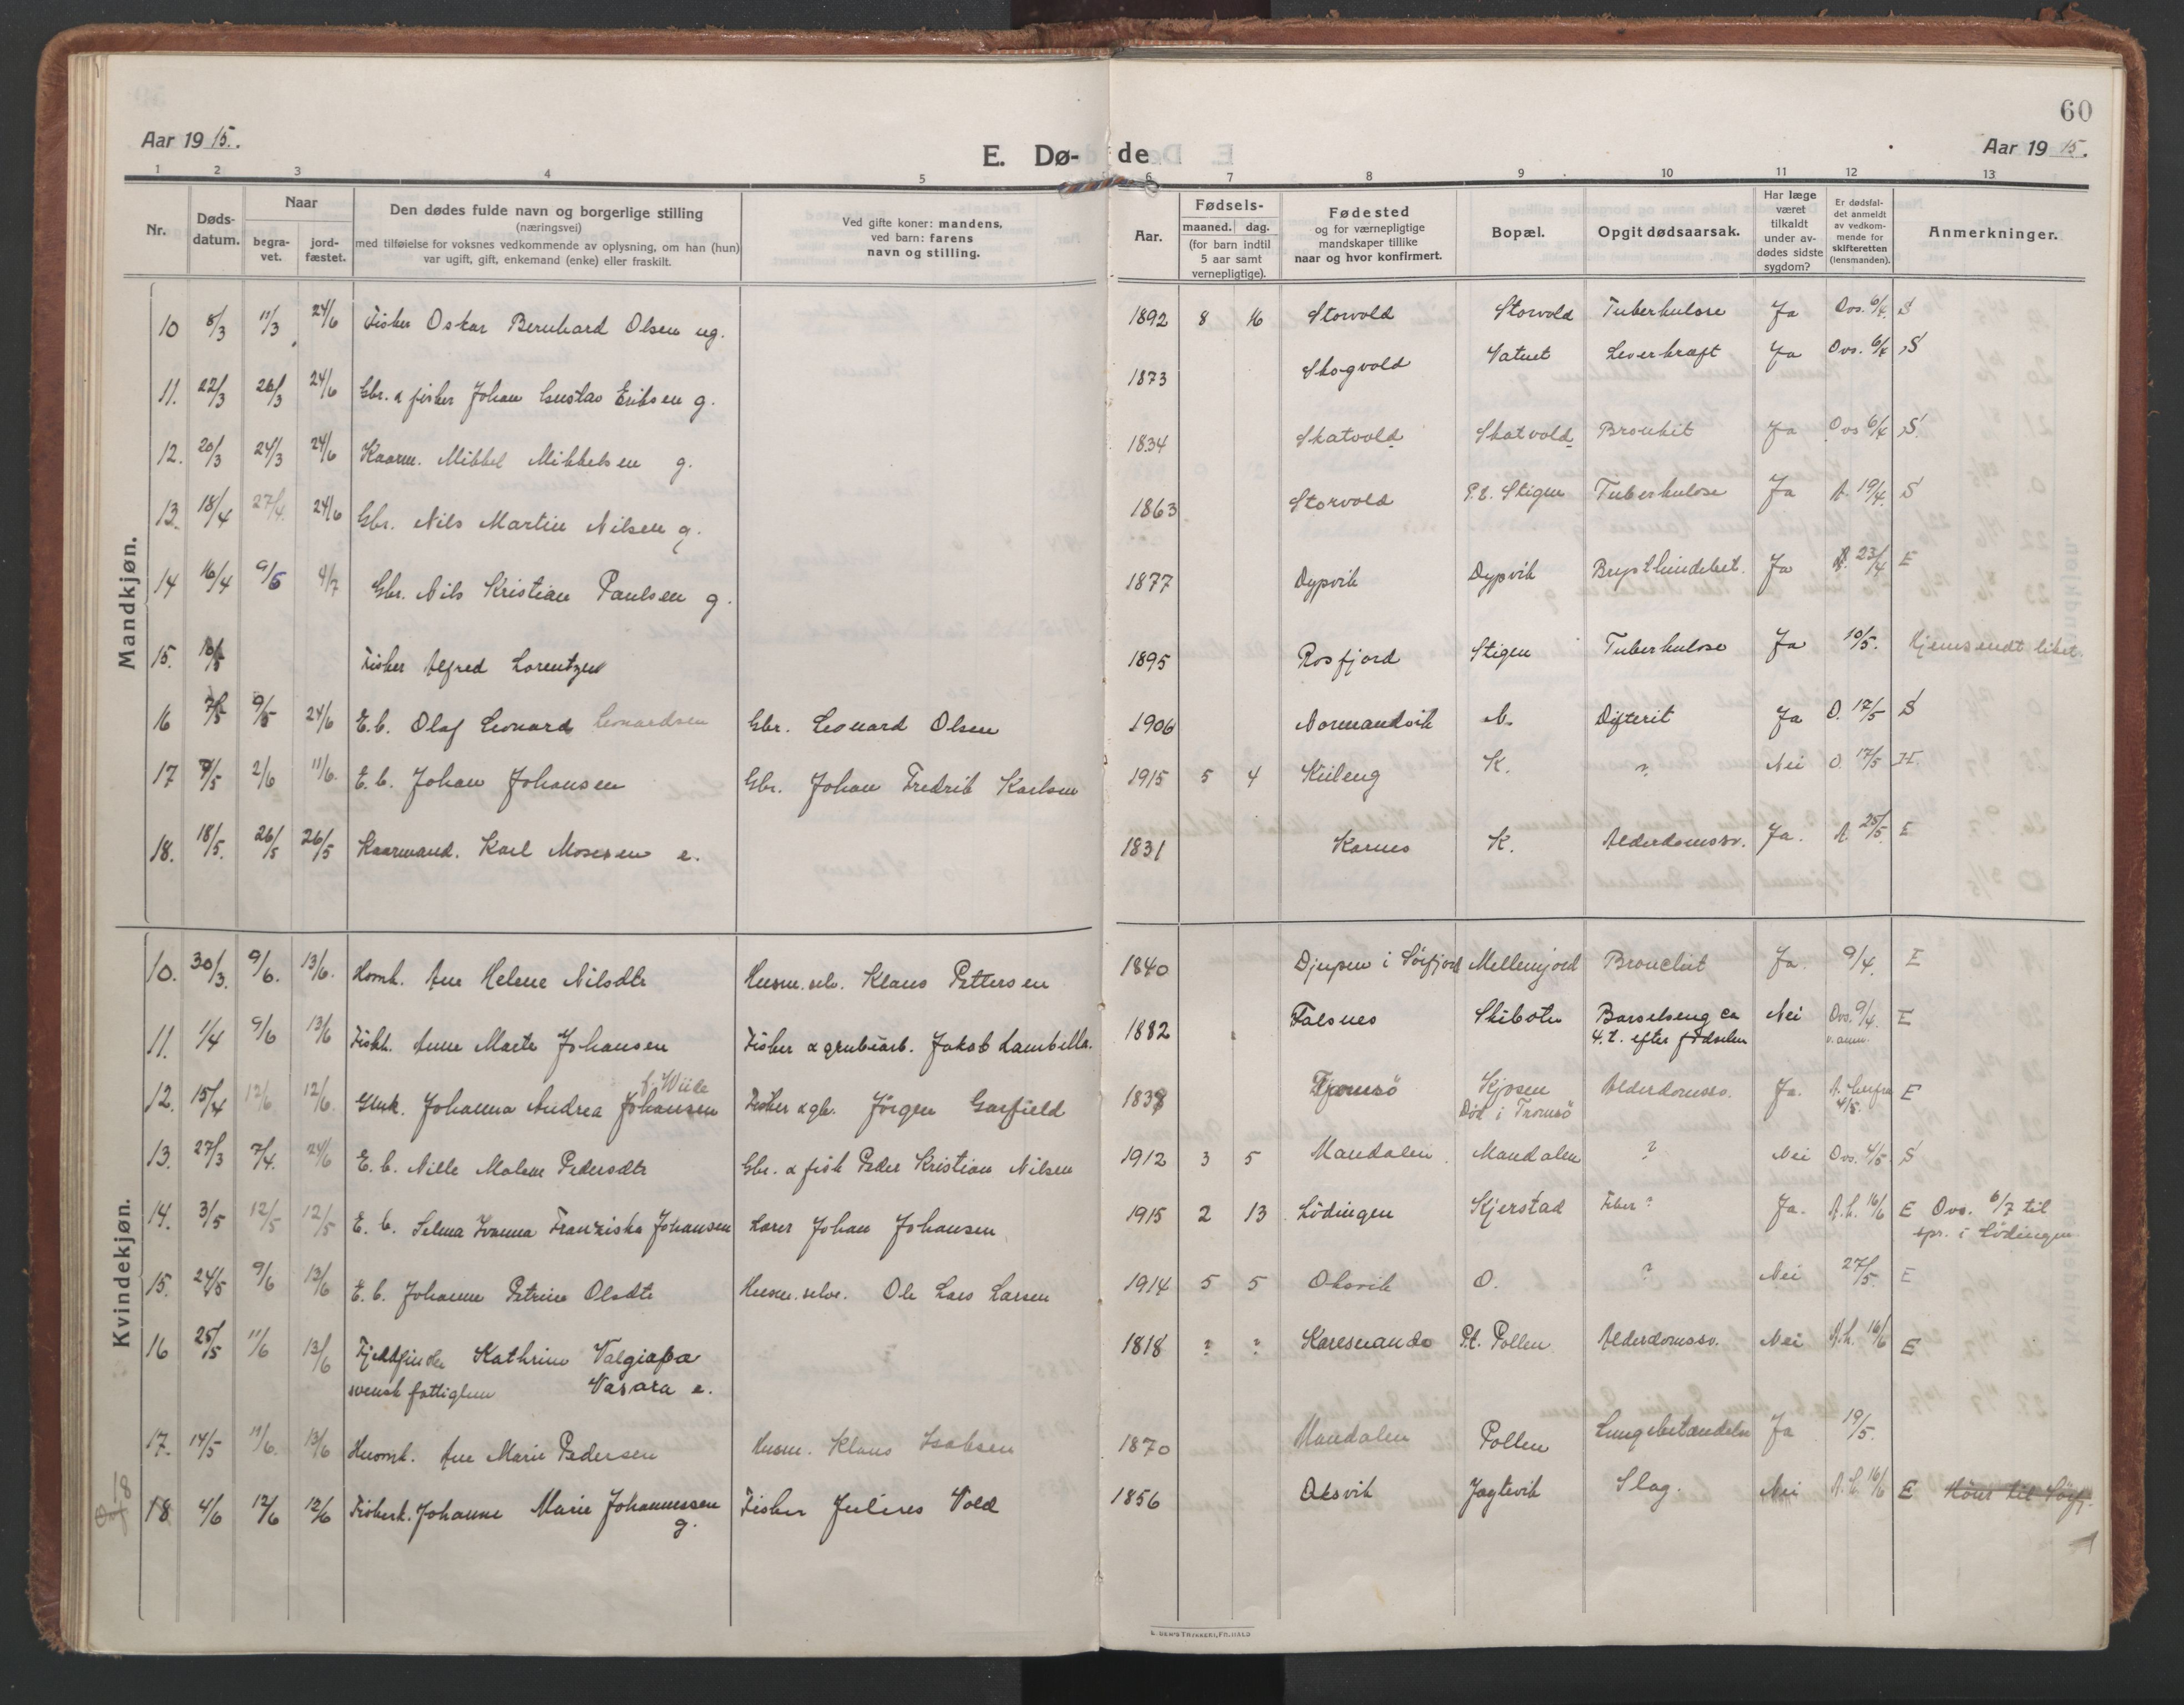 60
Aar 19 15.
E. Dø- de
Aar 19 15.
1 2 3 4 5 6 7 8 9 10 11 12 13
Nr. Døds-datum. Naar begra-vet. jord-fæstet. Den dødes fulde navn og borgerlige stilling (næringsvei) med tilføielse for voksnes vedkommende av oplysning, om han (hun) var ugift, gift, enkemand (enke) eller fraskilt. Ved gifte koner: mandens, ved barn: farens navn og stilling. Aar. Fødsels- maaned. dag. (for barn indtil 5 aar samt vernepligtige). Fødested og for værnepligtige mandskaper tillike naar og hvor konfirmert. Bopæl. Opgit dødsaarsak. Har læge været tilkaldt under av-dødes sidste sygdom? Er dødsfal-det anmeldt av vedkom-mende for skifteretten (lensmanden). Anmerkninger.
Mandkjøn.
10 8/3 11/3 24/6 Fisker Oskar Bernhard Olsen ug. 1892 8 16 Storvold Storvold Tuberkulose Ja Ovs. 6/4. S
11. 22/3 26/3 24/6 Gbr. & fisker Johan Gustav Eriksen g. 1873 Skogvold Vatnet Leverkræft Ja Ovs. 6/4 S
12. 20/3 24/3 24/6 Kaarm. Mikkel Mikkelsen g. 1834 Skatvold Skatvold Bronkit Ja Ovs 6/4 S
13. 18/4 27/4. 24/6 Gbr. Nils Martin Nilsen g. 1863 Storvold P.t. Stigen Tuberkulose Ja A. 19/4. S
14 16/4 9/5 4/7 Gbr. Nils Kristian Paulsen g. 1877 Dypvik Dypvik Ja A. 23/4 E
15. Fisker Alfred Lorentzen 1895 Rosfjord Stigen Tuberkulose Ja 10/5. Hjemsendt liket.
16 7/5 9/5 24/6 E.b. Olaf Leonard Leonardsen Gbr. Leonard Olsen 1906 Normandvik N. Difterit Ja O. 17/5 S
17 7/5 2/6 11/6. E.b. Johan Johansen Gbr. Johan Fredrik Karlsen 1915 5 4 Kiileng K. ? Nei O. 17/5 H.
18. 18/5. 26/5 26/5 Kaarmand. Karl Mosesen e. 1831 Karnes K. Alderdomssv. Ja. A 25/5. E
Kvindekjøn.
10. 30/3. 9/6. 13/6. Ane Helene Nilsdtr Husm. selv. Klaus Pettersen 1840 Djupen i Sörfjord Mellemjord Bronchit Ja. 9/4. E
11. 1/4 9/6 13/6 Fiskk. Anne Marte Johansen Fisker & grubearb. Jakob Lambella. 1882 Falsnes Skibotn Barselseng ca Nei Ovs. 9/4. E
4. t. efter fødselen
12. 15/4 12/6 12/6. Johanna Andrea Johansen f. Wiide Fisker & gb. Jörgen Garfield 1838 Tromsö Kjosen Alderdomssv. Ja. 4/5. E
Död i Tromsö
13. 27/3 7/4. 24/6 E.b. Nille Malene Pedersdtr Gbr. & fisk Peder Kristian Nilsen 1912 3 5 Mandalen Mandalen ? Nei Ovs. 4/5. S
14. 3/5 12/5 12/5 E.b. Selma Ivanna Franziska Johansen Lærer Johan Johansen 1915 2 13 Lödingen Kjerstad ? Ja. A.h. 16/6 E Ovs. 6/7 til
spr. i Lödingen
15. 24/5 9/6 13/6 E.b. Johanne Petrine Olsdtr Husm. selve. Ole Lars Larsen 1914 5 5 Oksvik O. ? Nei 27/5 E
16 25/5 11/6 13/6 Kathrine Valgiapa 1818 ? ? Karesuando P.t. Pollen Alderdomssv. Nei A.h. 16/6 E
svensk fattiglem Vasara e.
17. 14/5 11/6. 13/6 Husmk. Ane Marie Pedersen Husm. Klaus Isaksen 1870 Mandalen Pollen Lungebetændelse Ja 19/5.
18 4/6 12/6 12/6 Fiskerk. Johanne Marie Johannessen Fisker Julius Vold 1856 Oksvik Jægtevik Slag. Nei A.h. 16/6 E
g.